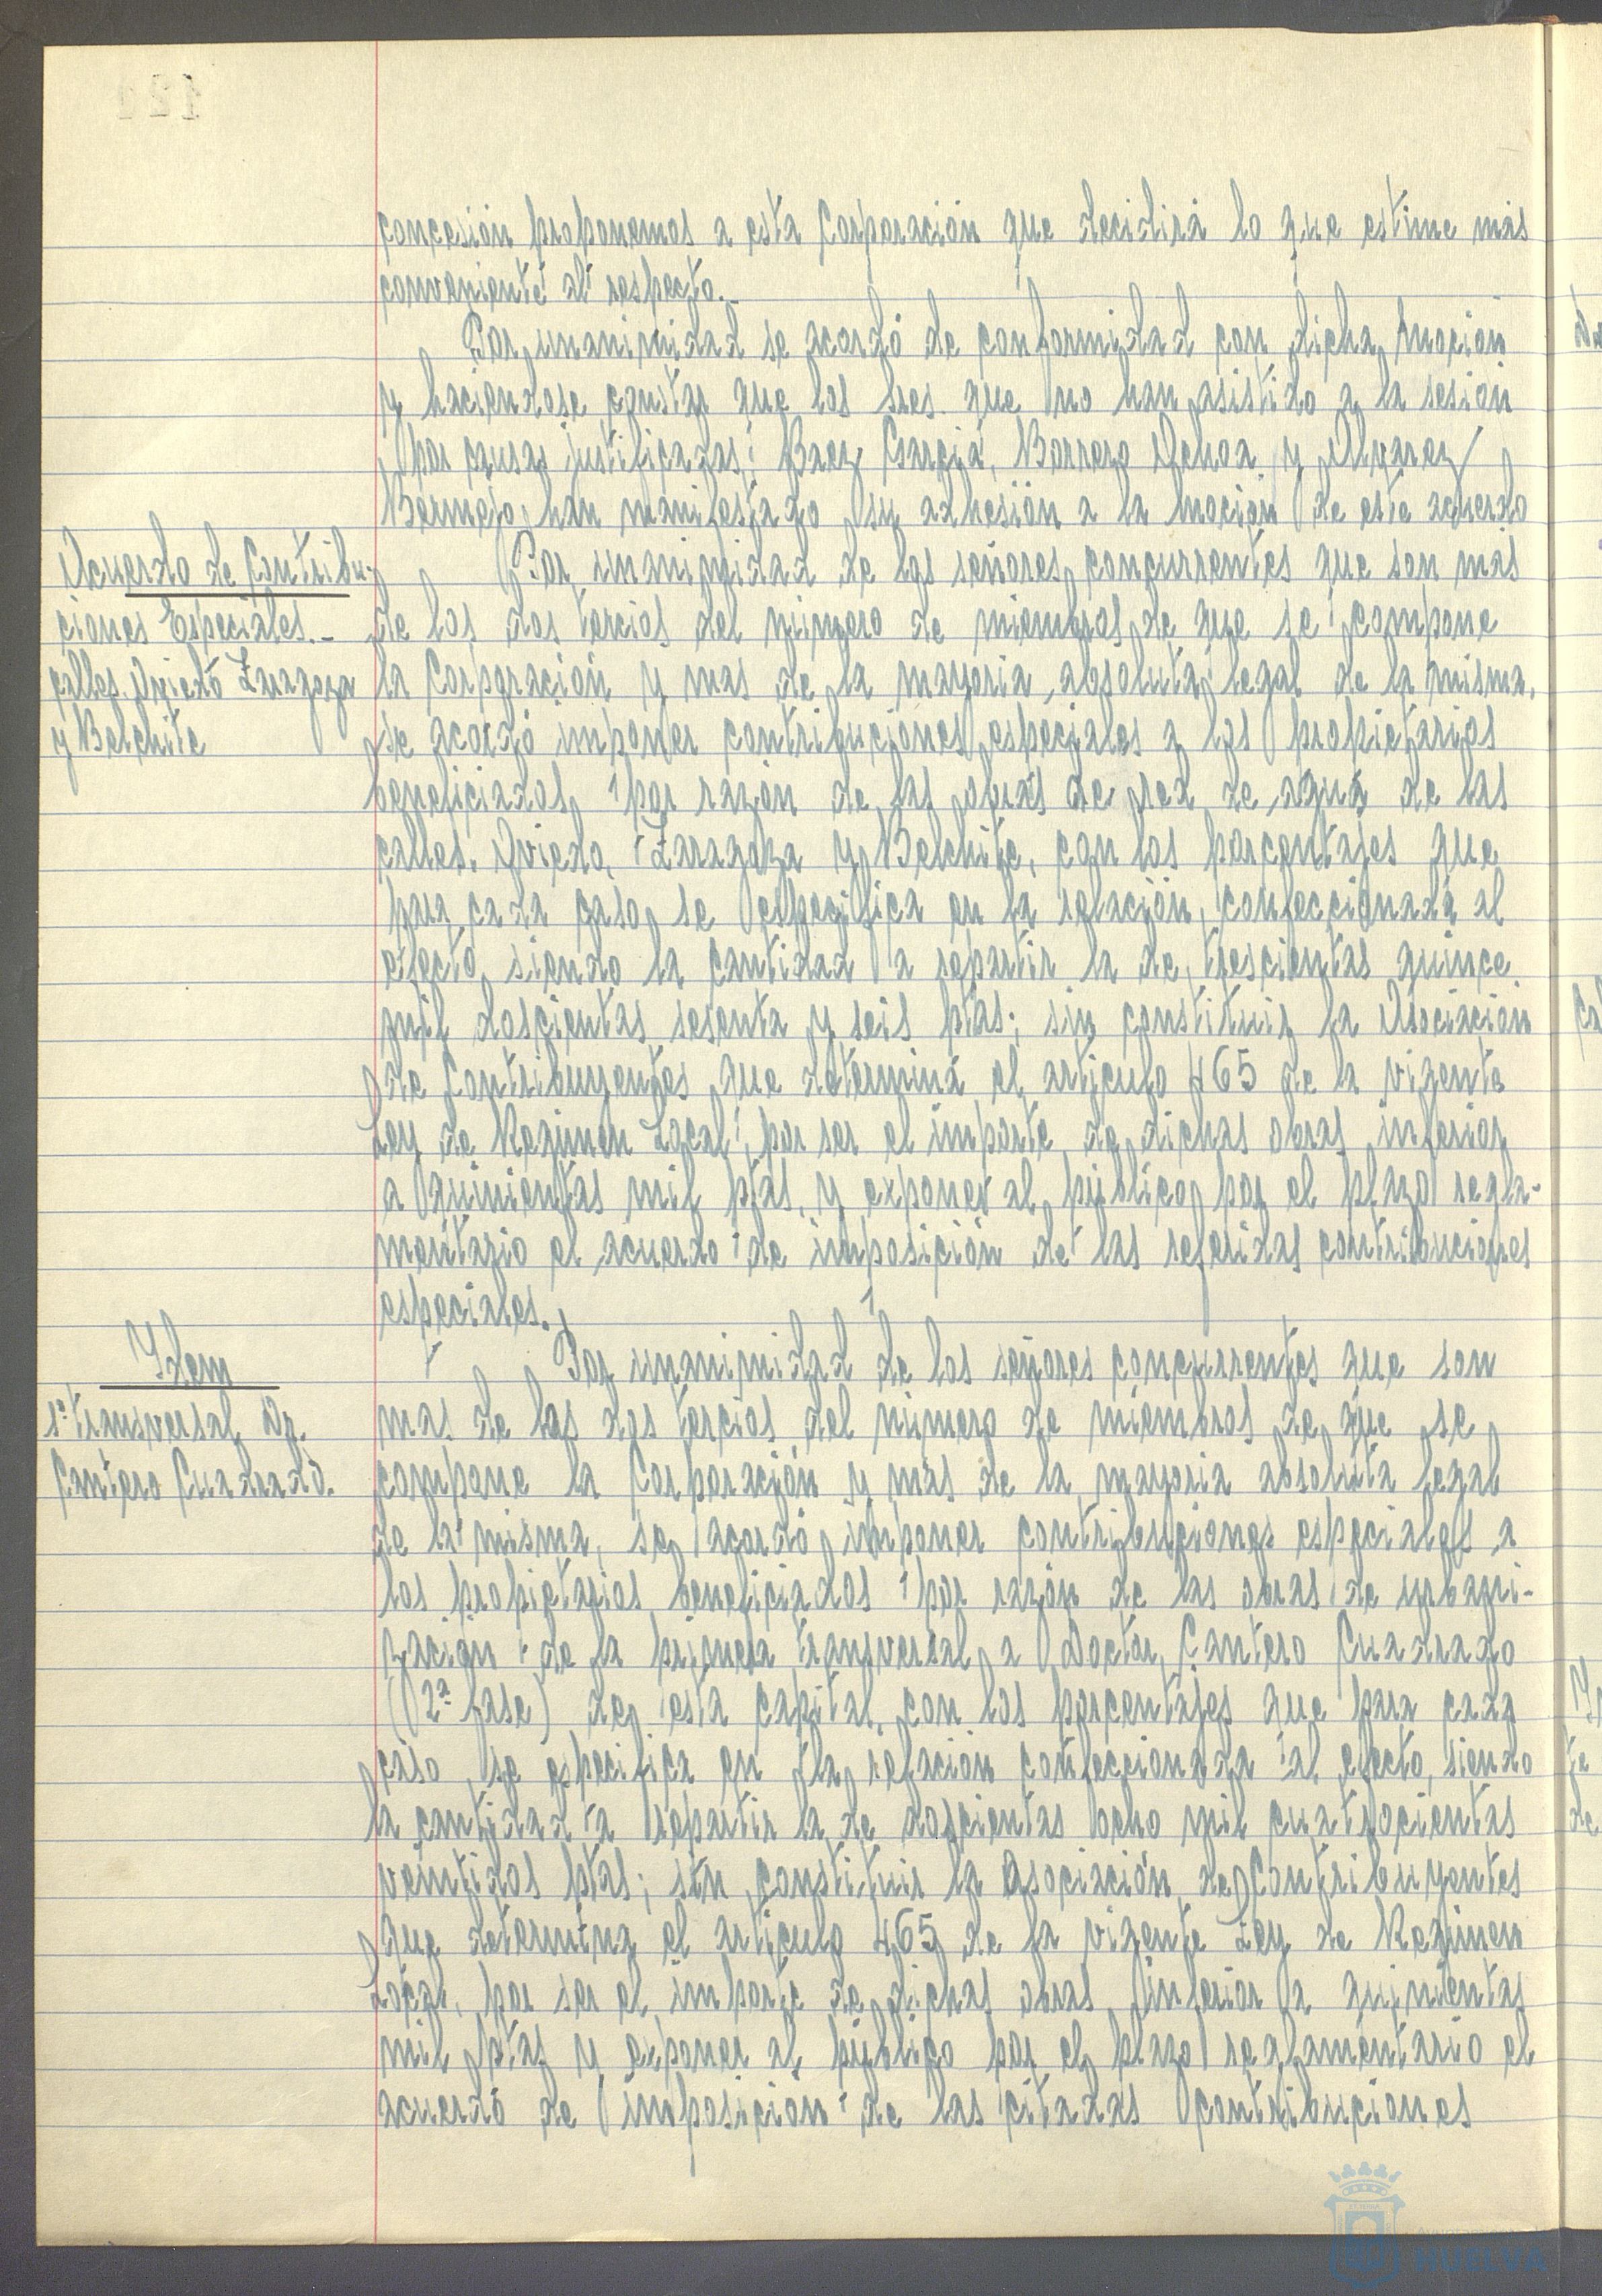 concesión proponemos a esta Corporación que decidirá lo que estime más
conveniente al respecto.-
Por unanimidad se acordó de conformidad con dicha moción
y haciendose constar que los sres. que no han asistido a la sesión
por causas justificadas: Baez García, Borrero Ochoa y Alvarez
Bermejo, han manifestado su adhesión a la moción de este acuerdo
Acuerdo de Contribu-
ciones Especiales.-
calles Oviedo Zaragoza
y Belchite
Por unanimidad de los señores concurrentes que son más
de los dos tercios del número de miembros de que se compone
la Corporación y mas de la mayoria absoluta legal de la misma,
se acordó imponer contribuciones especiales a los propietarios
beneficiados por razón de las obras de red de agua de las
calles, Oviedo, Zaragoza y Belchite, con los porcentajes que
para cada caso se especifica en la relación, confeccionada al
efecto, siendo la cantidad a repartir la de trescientas quince
mil doscientas sesenta y seis ptas; sin constituir la Asociación
de Contribuyentes que determina el articulo 465 de la vigente
Ley de Regimen Local, por ser el importe de dichas obras inferior
a quinientas mil ptas, y exponer al público por el plazo regla-
mentario el acuerdo de imposición de las referidas contribuciones
especiales.
Idem
1ª transversal Dr.
Cantero Cuadrado.
Por unanimidad de los señores concurrentes que son
mas de los dos tercios del número de miembros de que se
compone la Corporación y más de la mayoria absoluta legal
de la misma, se acordó imponer contribuciones especiales a
los propietarios beneficiados por razón de las obras de urbani-
zación de la primera transversal a Doctor Cantero Cuadrado
(2ª fase) de esta capital, con los porcentajes que para cada
caso se especifica en la relación confeccionada al efecto, siendo
la cantidad a repartir la de doscientas ocho mil cuatrocientas
veintidos ptas; sin constituir la Asociación de Contribuyentes
que determina el articulo 465 de la vigente Ley de Regimen
Local, por ser el importe de dichas obras inferior a quinientas
mil ptas y exponer al público por el plazo reglamentario el
acuerdo de imposición de las citadas contribuciones
HUELVA